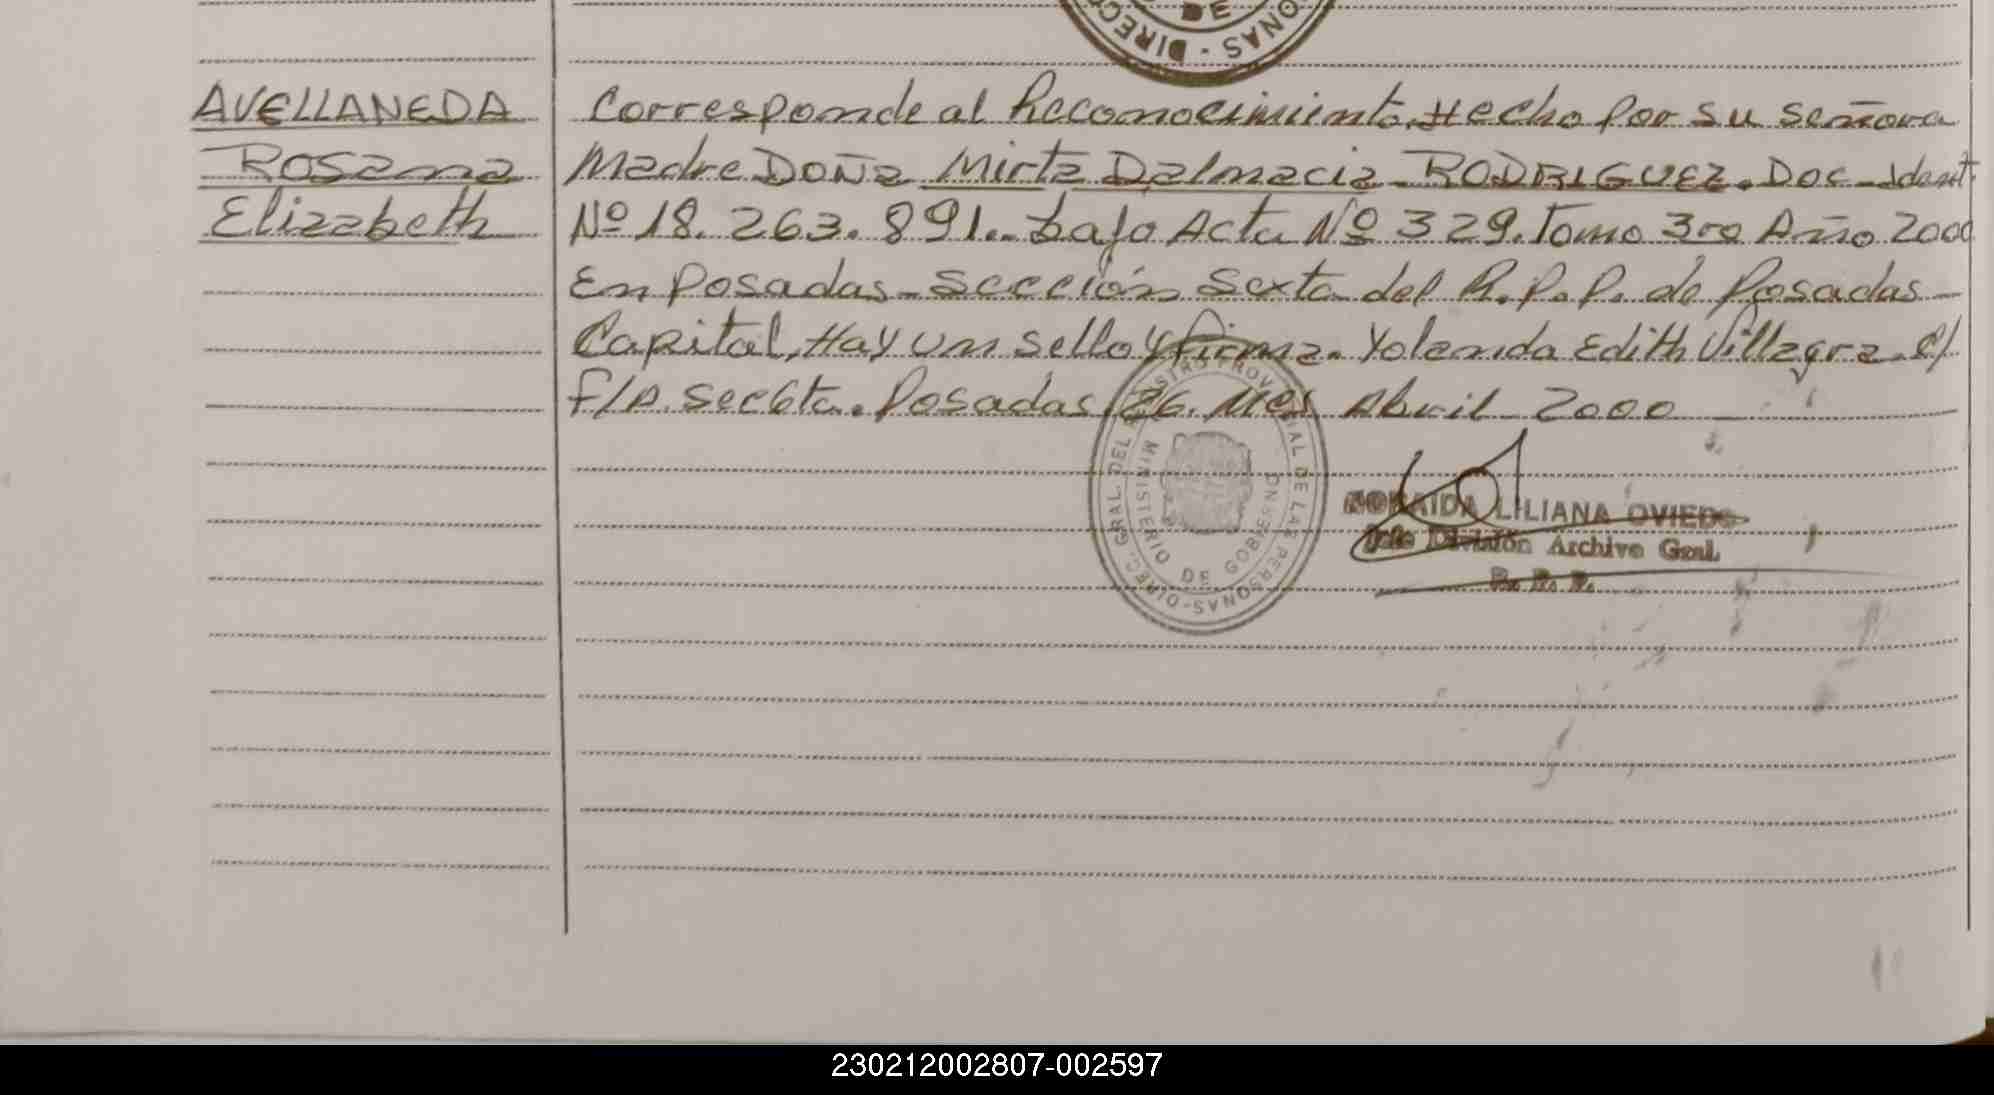 DE
DIREC
ONAS -
AVELLANEDA
Rosana
Elizabeth
Corresponde al Reconocimiento. Hecho por su señora
Madre DOÑA Mirta Dalmacia RODRIGUEZ. Doc-Ident
Nº 18.263.891.- bajo Acta Nº 329. Tomo 3ro Año 2000
En Posadas - Sección Sexta del R.P.P. de Posadas -
Capital, Hay un sello y firma. Yolanda Edith Villagra.
F/A. Sec 6ta. Posadas, 26. Mes Abril - 2000
DIREC. GRAL. DEL REGISTRO PROVINCIAL DE LAS PERSONAS
MINISTERIO DE GOBIERNO
LILIANA OVIEDO
Jefe División Archivo Gral.
230212002807-002597